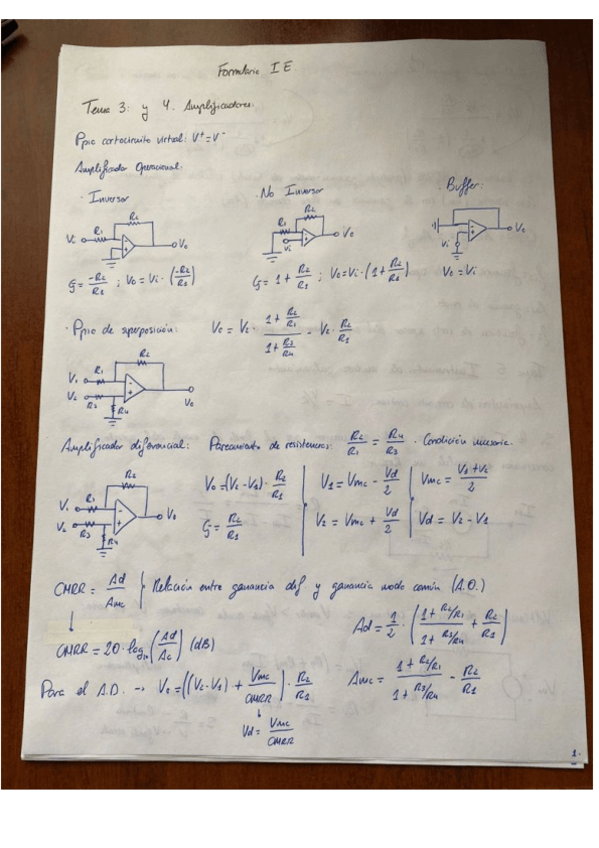 Formulario I E
Tema 3: y 4. Amplificadores:
Ppio cortocircuito virtual: V⁺=V⁻
Amplificador Operacional:
· Inversor
· No Inversor
· Buffer:
R2
R1
Vi
Vo
R2
R1
Vi
Vo
Vi
Vo
G = -R2/R1 ; Vo = Vi · (-R2/R1)
G = 1 + R2/R1 ; Vo = Vi · (1 + R2/R1)
Vo = Vi
· Ppio de superposición:
Vo = V2 · (1 + R2/R1)/(1 + R3/R4) - V1 · R2/R1
R2
R1
V1
V2
R3
R4
Vo
Amplificador diferencial:
Pareamiento de resistencias: R2/R1 = R4/R3 · Condición necesaria.
R2
R1
V1
V2
R3
R4
Vo
Vo = (V2 - V1) · R2/R1
G = R2/R1
V1 = Vmc - Vd/2
V2 = Vmc + Vd/2
Vmc = (V1 + V2)/2
Vd = V2 - V1
CMRR = Ad/Amc } Relación entre ganancia dif y ganancia modo común (A.O.)
↓
CMRR = 20 · log₁₀ (Ad/Ac) (dB)
Ad = 1/2 · ((1 + R2/R1)/(1 + R3/R4) + R2/R1)
Amc = (1 + R2/R1)/(1 + R3/R4) - R2/R1
Para el A.D. → Vo = ((V2 - V1) + Vmc/CMRR) · R2/R1
↓
Vd = Vmc/CMRR
1